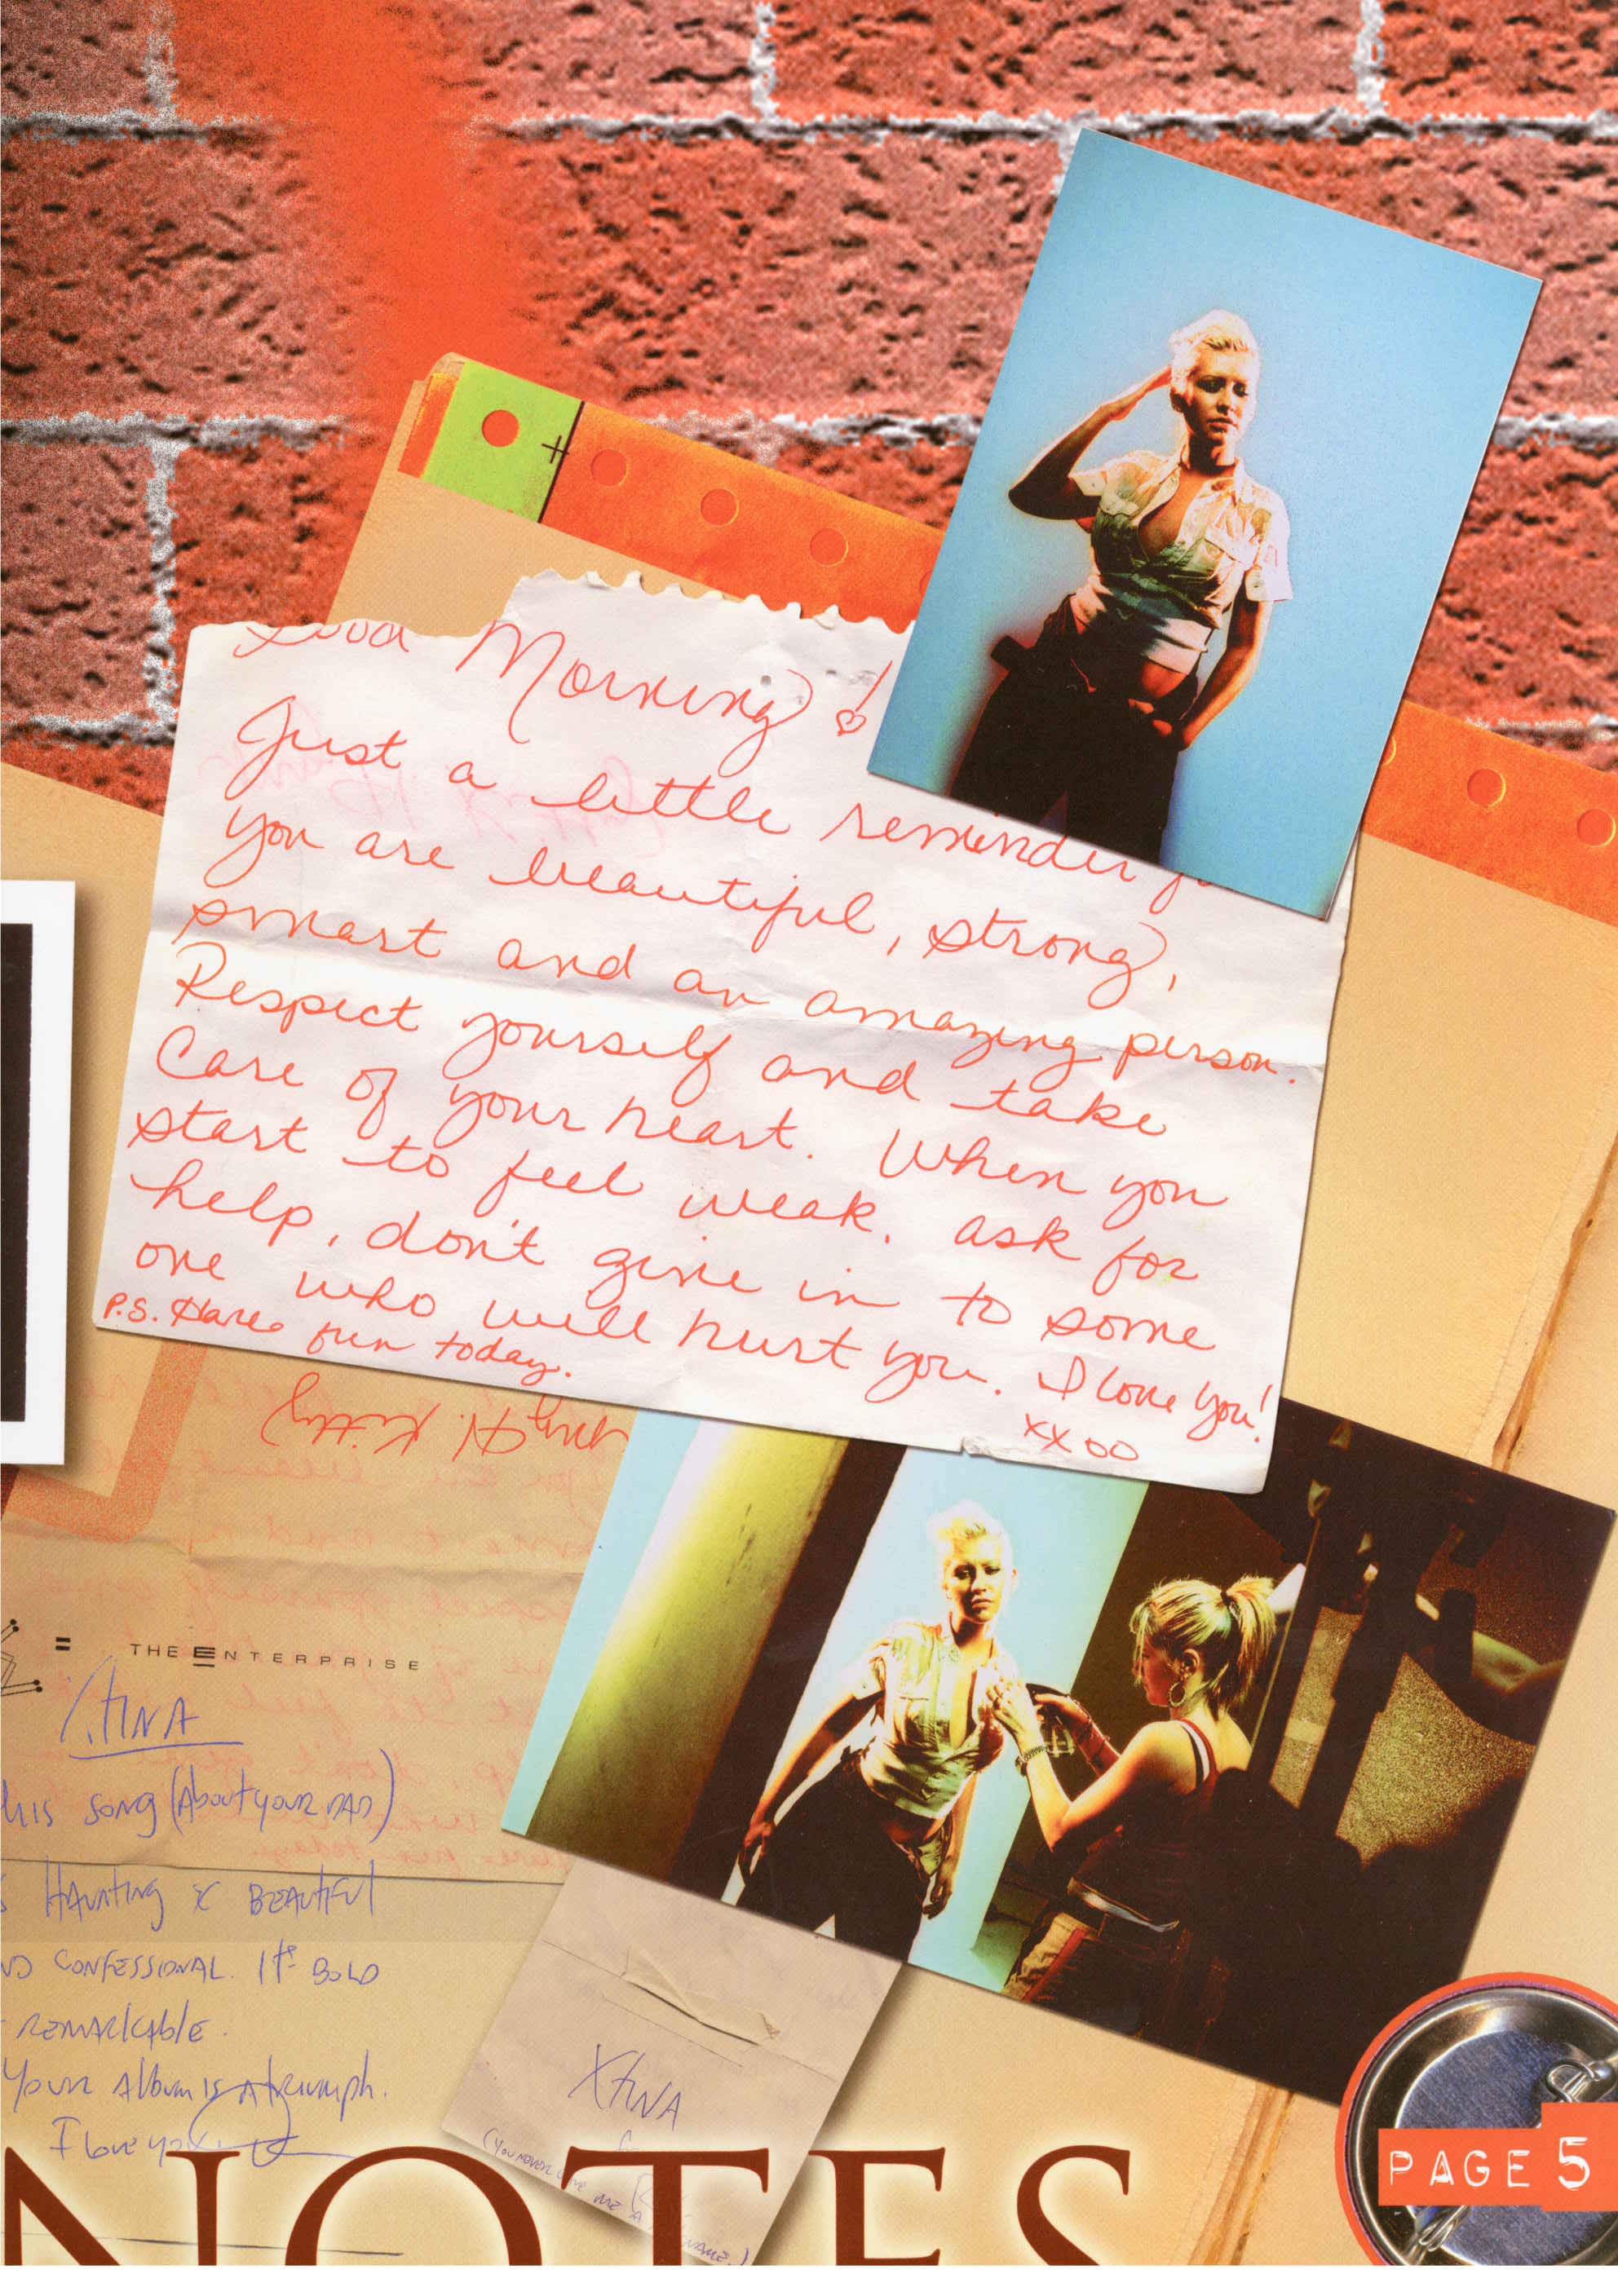 Good Morning!
Just a little reminder
you are beautiful, strong,
smart and an amazing person.
Respect yourself and take
Care of your heart. When you
start to feel weak, ask for
help, don't give in to some
one who will hurt you. I love you!
P.S. Have fun today.
xxoo
=
THE ENTERPRISE
XtiNA
his SONG (About your DAD)
s HAunting & BEAUtiful
ND CONFESSIONAL. It's BOLD
REMARKAblE.
Your Album is A triumph.
I love you
XtiNA
(You never me a NAME.)
NOTES
PAGE 5